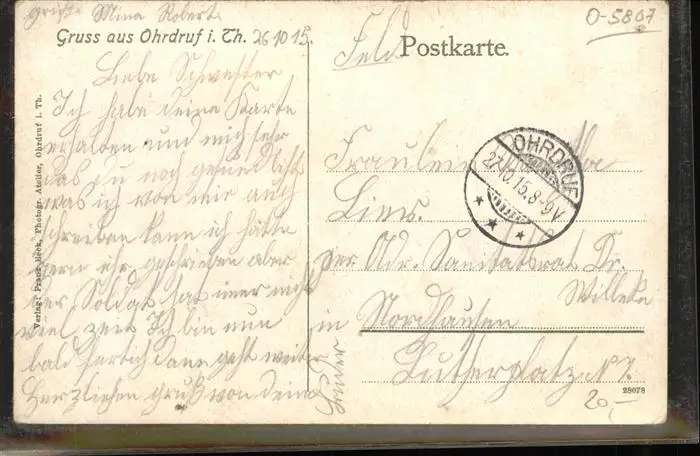 grüße Mina Robert
Gruss aus Ohrdruf i. Th. 26 10 15.
Liebe Schwester
Ich habe deine Karte
erhalten und mich sehr
das du noch gesund bist
was ich von mir auch
schreiben kann ich hätte
gern ehr geschrieben aber
der Soldat hat imer nicht
viel zeit Ich bin nun
bald fertich dann geht weiter
Herzlichen gruß von deinem
Verlag: Franz Beck, Photogr. Atelier, Ohrdruf i. Th.
O-5807
Feld Postkarte.
OHRDRUF
27.10.15.8-9V
Fraulein
Lina
per Adr. Sanitatsrat Dr.
Willeke
in Nordhausen
Lutherplatz N 7.
28078
20,-